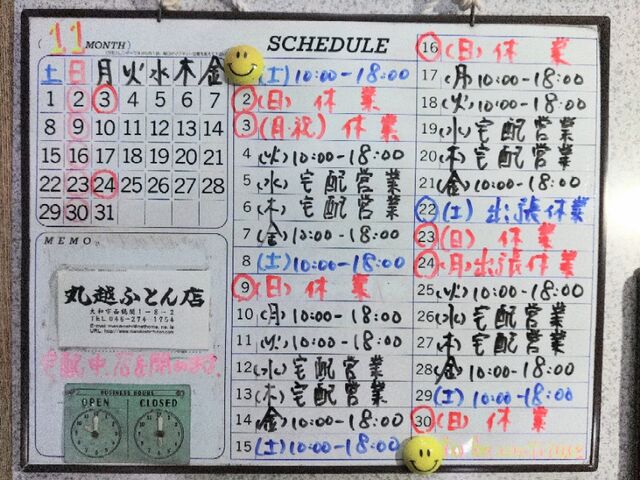 11 MONTH
SCHEDULE
土 日 月 火 水 木 金
1 2 3 4 5 6 7
8 9 10 11 12 13 14
15 16 17 18 19 20 21
22 23 24 25 26 27 28
29 30 31
MEMO
丸越ふとん店
大和市西鶴間1-8-2
TEL 046-274-1754
BUSINESS HOURS
OPEN CLOSED
(土) 10:00-18:00
2 (日) 休業
3 (月・祝) 休業
4 (火) 10:00-18:00
5 (水) 宅配営業
6 (木) 宅配営業
7 (金) 10:00-18:00
8 (土) 10:00-18:00
9 (日) 休業
10 (月) 10:00-18:00
11 (火) 10:00-18:00
12 (水) 宅配営業
13 (木) 宅配営業
14 (金) 10:00-18:00
15 (土) 10:00-18:00
16 (日) 休業
17 (月) 10:00-18:00
18 (火) 10:00-18:00
19 (水) 宅配営業
20 (木) 宅配営業
21 (金) 10:00-18:00
22 (土) 出張休業
23 (日) 休業
24 (月) 出張休業
25 (火) 10:00-18:00
26 (水) 宅配営業
27 (木) 宅配営業
28 (金) 10:00-18:00
29 (土) 10:00-18:00
30 (日) 休業